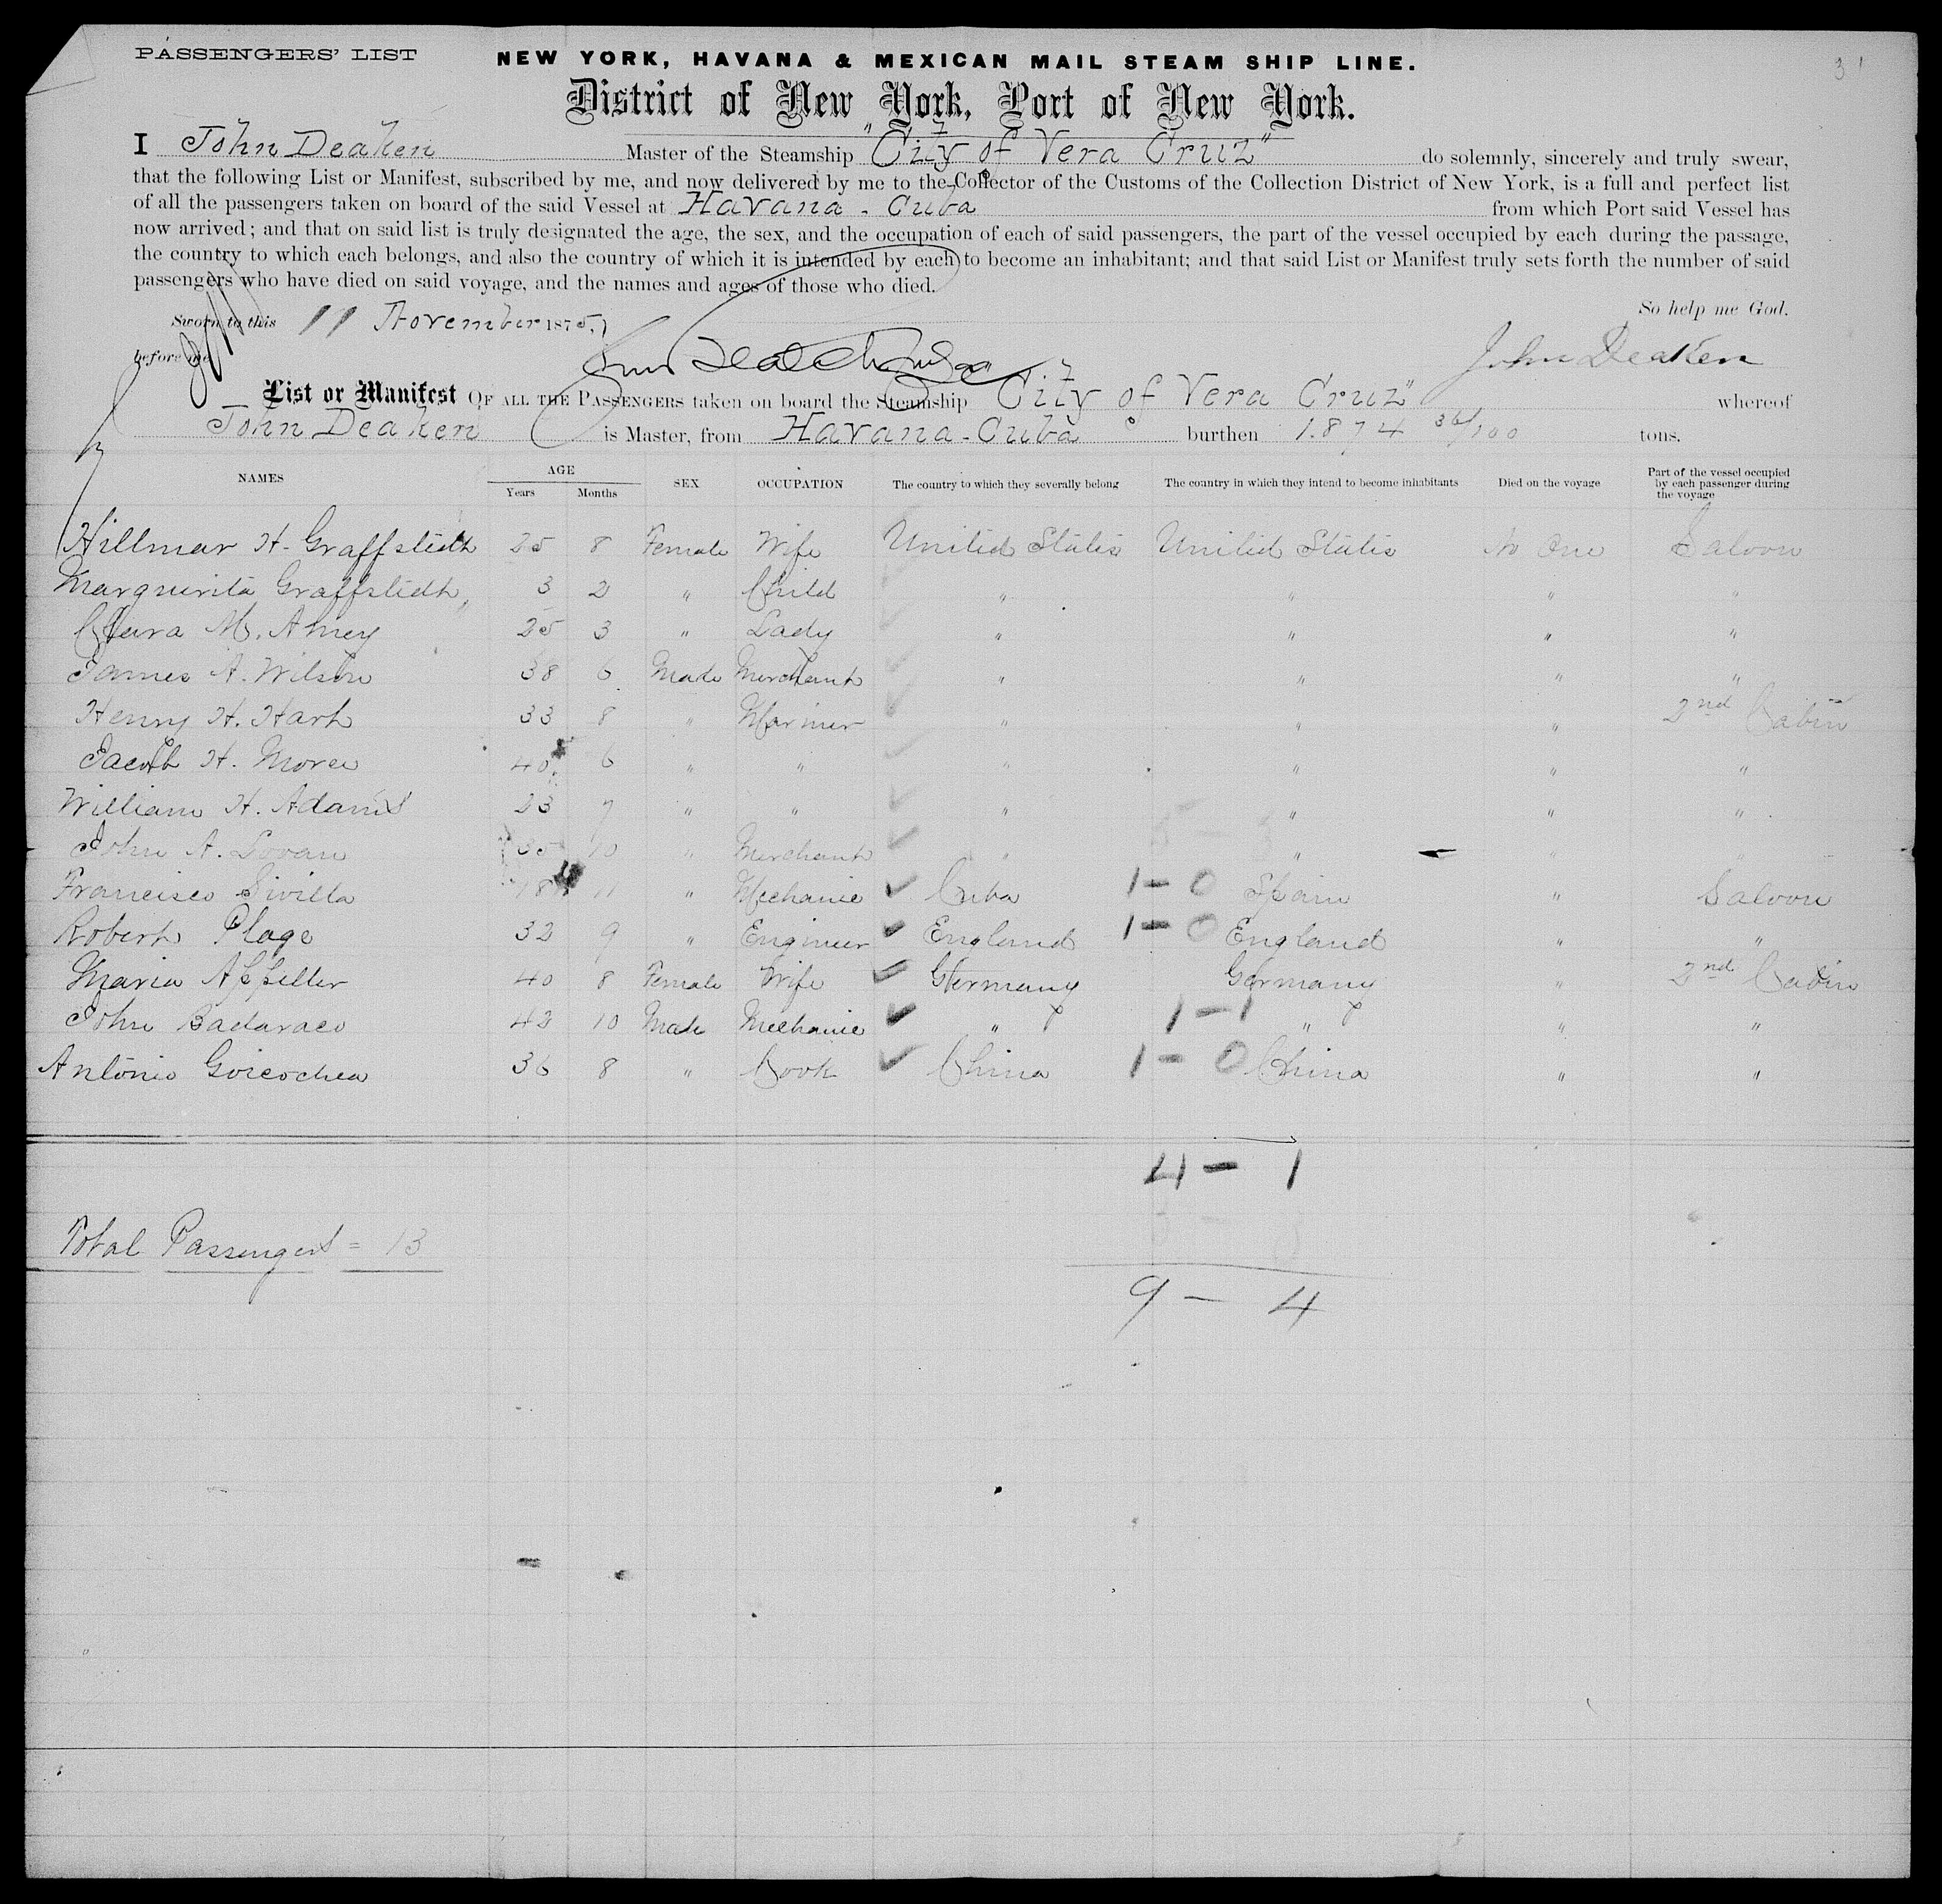 PASSENGERS' LIST NEW YORK, HAVANA & MEXICAN MAIL STEAM SHIP LINE. 31
District of New York, Port of New York.
I John Deaken Master of the Steamship "City of Vera Cruz" do solemnly, sincerely and truly swear,
that the following List or Manifest, subscribed by me, and now delivered by me to the Collector of the Customs of the Collection District of New York, is a full and perfect list
of all the passengers taken on board of the said Vessel at Havana - Cuba from which Port said Vessel has
now arrived; and that on said list is truly designated the age, the sex, and the occupation of each of said passengers, the part of the vessel occupied by each during the passage,
the country to which each belongs, and also the country of which it is intended by each to become an inhabitant; and that said List or Manifest truly sets forth the number of said
passengers who have died on said voyage, and the names and ages of those who died.
So help me God.
Sworn to this 11 November 1875,
before me John Deaken
List or Manifest OF ALL THE PASSENGERS taken on board the Steamship "City of Vera Cruz" whereof
John Deaken is Master, from Havana - Cuba burthen 1.874 36/100 tons.
NAMES AGE Years Months SEX OCCUPATION The country to which they severally belong The country in which they intend to become inhabitants Died on the voyage Part of the vessel occupied by each passenger during the voyage
Hillmar H. Graffstedt 25 8 Female Wife United States United States No One Saloon
Marguerita Graffstedt 3 2 " Child " " " "
Clara M. Amey 25 3 " Lady " " " "
James A. Wilson 38 6 Male Merchant " " " "
Henry H. Hart 33 8 " Mariner " " " 2nd Cabin
Jacob H. Morea 40 6 " " " " " "
William H. Adams 23 7 " " " " " "
John A. Lovan 35 10 " Merchant " " " "
Francisco Sivilla 18 11 " Mechanic Cuba 1-0 Spain " Saloon
Robert Plage 32 9 " Engineer England 1-0 England " "
Maria Appeller 40 8 Female Wife Germany Germany " 2nd Cabin
John Badaraco 42 10 Male Mechanic " 1-1 " " "
Antonio Goicochea 36 8 " Cook China 1-0 China " "
4 - 1
Total Passengers = 13
9 - 4